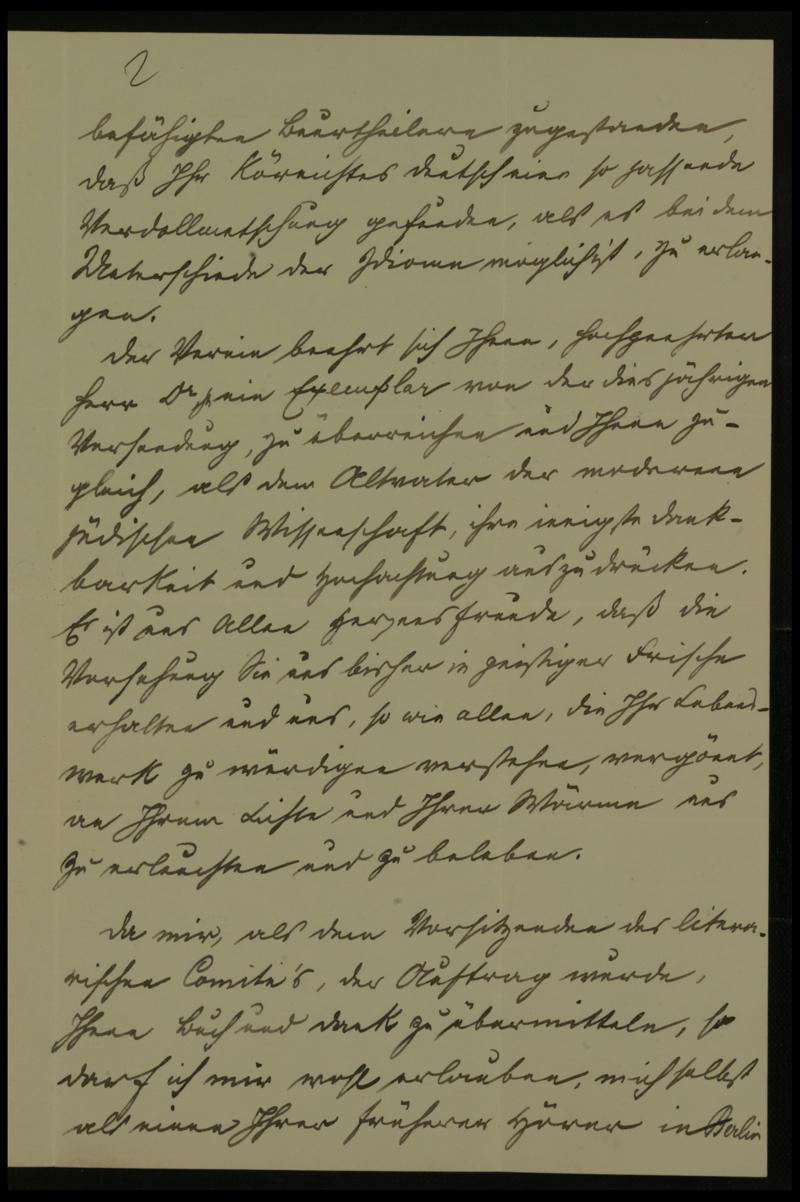 2
befähigten Beurtheilern zugestanden,
daß Ihr körnichtes deutsch eine so passende
Verdollmetschung gefunden, als es bei dem
Unterschiede der Idiome möglich ist, zu erlan-
gen.
Der Verein beehrt sich Ihnen, hochgeehrter
Herr Dr, ein Exemplar von der diesjährigen
Versendung, zu überreichen und Ihnen zu-
gleich, als dem Altvater der modernen
jüdischen Wissenschaft, ihre innigste Dank-
barkeit und Hochachtung auszudrücken.
Es ist uns Allen Herzensfreude, daß die
Vorsehung Sie uns bisher in geistiger Frische
erhalten und uns, so wie allen, die Ihr Lebens-
werk zu würdigen verstehen, vergönnt,
an Ihrem Lichte und Ihrer Wärme uns
zu erleuchten und zu beleben.
Da mir, als dem Vorsitzenden des litera-
rischen Comité's, der Auftrag wurde,
Ihnen Buch und Dank zu übermitteln, so
darf ich mir wohl erlauben, mich selbst
als einen Ihrer früheren Hörer in Berlin